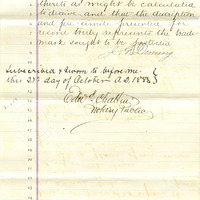 thereto as might be calculated
to deceive and that the description
and fac-simile presented for
record truly represents the trade-
mark sought to be protected
Subscribed & sworn to before me
this 2 day of October A.D. 188
Edw.
Notary Public